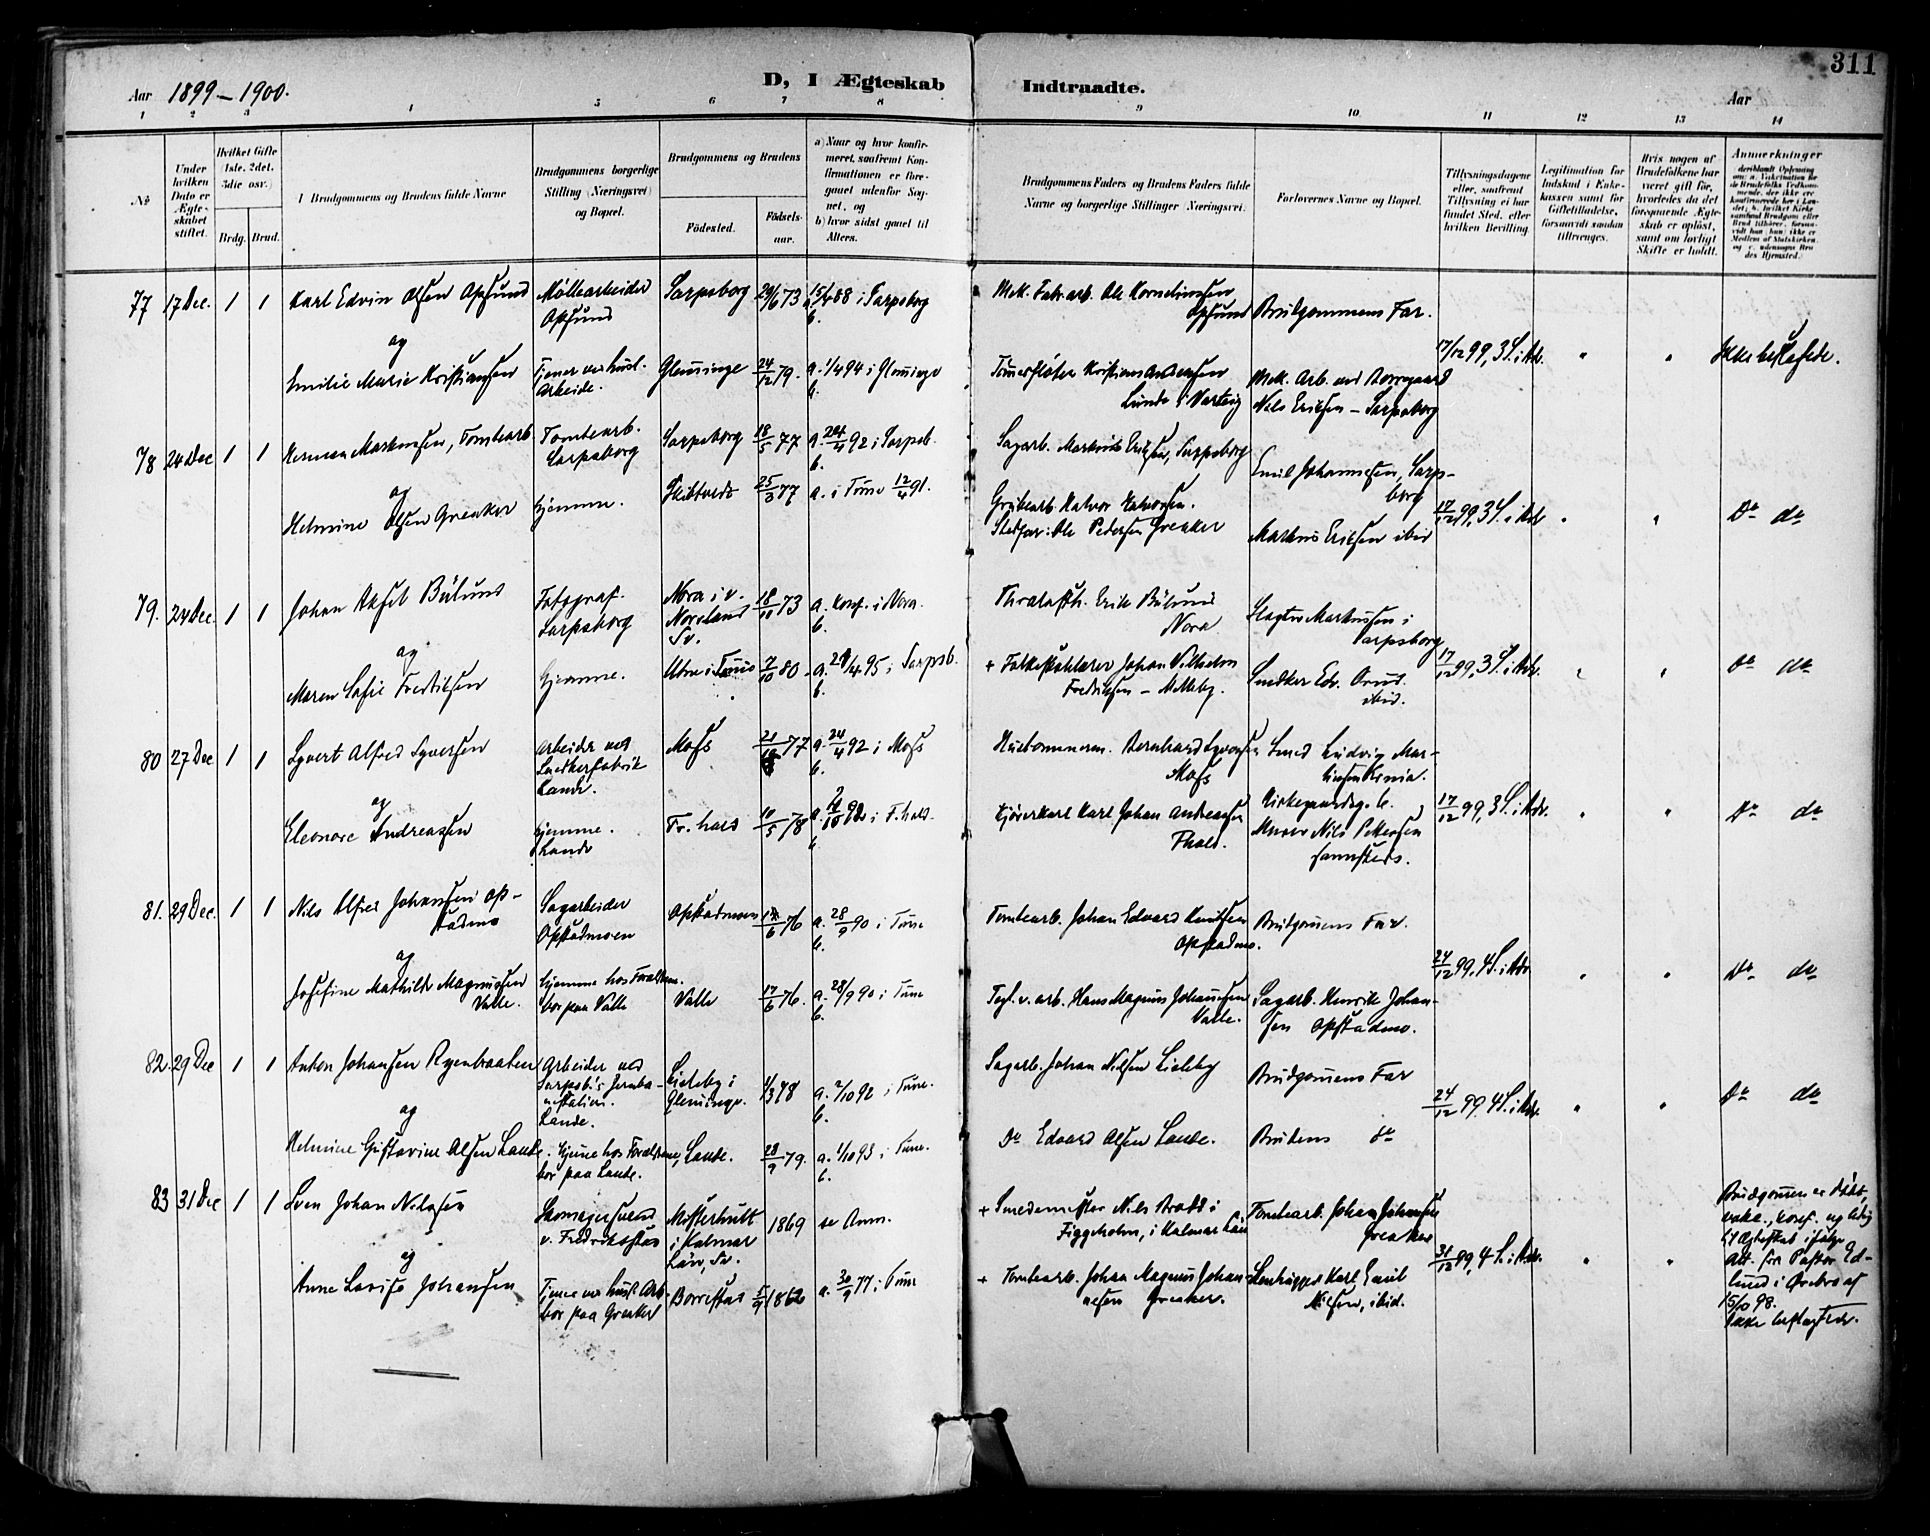 311
Aar 1899-1900.
D, I Ægteskab Indtraadte.
Aar
1 2 3 4 5 6 7 8 9 10 11 12 13 14
No
Under hvilken Dato er Ægteskabet stiftet.
Hvilket Gifte (1ste, 2det, 3die osv.)
Brdg. Brud.
Brudgommens og Brudens fulde Navne
Brudgommens borgerlige Stilling (Næringsvei) og Bopæl.
Brudgommens og Brudens
Fødested. Fødselsaar.
a) Naar og hvor konfirmeret, saafremt Konfirmationen er foregaaet udenfor Sognet, og
b) hvor sidst gaaet til Alters.
Brudgommens Faders og Brudens Faders fulde Navne og borgerlige Stillinger (Næringsvei.
Forlovernes Navne og Bopæl.
Tillysningsdagene eller, saafremt Tillysning ei har fundet Sted, efter hvilken Bevilling.
Legitimation for Indskud i Enkekassen samt for Giftetilladelse, forsaavidt saadan tiltrænges.
Hvis nogen af Brudefolkene har været gift før, hvorledes da det foregaaende Ægteskab er opløst, samt om lovligt Skifte er holdt.
Anmerkninger
77 17 Dec. 1 1 Karl Edvin Olsen Opsund Møllearbeider Opsund Sarpsborg 29/6 73 a. 15/4 88 i Sarpsborg b.
Mek. Fabr. arb. Ole Kornelinssen Opsund Brudgommens Far.
og
17/12 99, 3 S. i Adv. " " Ikke beslægtede.
Emilie Marie Kristiansen Tjener ved husl. Arbeide. Glemminge 24/12 79. a. 1/4 94 i Glemminge b.
Tømmerfløter Kristian Andersen Lunde i Varteig Mek. Arb. ved Borregaard Nils Eriksen - Sarpsborg
78 24 Dec 1 1 Herman Markussen, Tomtearb. Tomtearb. Sarpsborg Sarpsborg 18/5 77 a. 24/4 92 i Sarpsb. b.
Sagarb. Markus Eriksen, Sarpsborg Emil Johannesen, Sarpsborg
og
17/12 99, 3 S. i Adv. " " Do do
Helmine Olsen Greaker hjemme. Skibtvedt 25/3 77 a. i Tune 12/4 91.
Grubearb. Halvor Halvorsen. Stedfar: Ole Pedersen Greaker Markus Eriksen ibid
79. 24 Dec. 1 1 Johan Aksel Bülund Fotograf. Sarpsborg Nora i v. Noreland Sv. 18/10 73 a. Konf. i Nora. b.
Erik Bülund Nora Slagter Markussen i Sarpsborg
og
17/12 99, 3 S. i Adv. " " Do do
Maren Sofie Fredriksen hjemme. i Tune 7/10 80. a. 21/4 95 i Sarpsb. b.
+ Folkeskolelærer Johan Vilhelm Fredriksen - Melleby. Snedker Edv. ibid.
80 27 Dec 1 1 Syvert Alfred Syversen Arbeider ved Snedkerfabrik Lande. Moss 21/12 77 a. 24/4 92 i Moss b.
Bernhard Syversen Moss Smed Ludvig Martinsen
og
17/12 99, 3 S. i Adv. " " Do do
Eleonore Andreassen hjemme. Lande Fr.hald 10/5 78 a. 2/10 92 i F.hald. b.
Kjørerkarl Karl Johan Andreassen F.hald. Kirkegaardsg. Murer Nils Pettersen sammesteds.
81. 29 Dec. 1 1 Nils Alfred Johansen Opstadmo Sagarbeider Opstadmoen Opstadmoen 12/6 76 a. 28/9 90 i Tune b.
Tomtearb. Johan Edvard Knutsen Opstadmo. Brudgommens Far.
og
24/12 99. 4 S. i Adv " " Do do
Josefine Mathilde Magnussen Valle. hjemme hos Forældrene. bor paa Valle Valle 17/6 76. a. 28/9 90 i Tune b.
Tegl. v. arb. Hans Magnus Johansen Valle. Sagarb. Henrik Johansen Opstadmo.
82. 29 Dec 1 1 Anton Johansen Ryenbraaten Arbeider ved Sarpsb.s Jernbanestation. Lande. Lieleby i Glemminge. 1/3 78 a. 2/10 92 i Tune. b.
Sagarb. Johan Nilsen Lieleby Brudgommens Far
og
24/12 99 4 S. i Adv. " " Do do
Helmine Gustavine Olsen Lande. hjemme hos Forældrene, bor paa Lande. Lande. 28/9 79. a. 1/10 93 i Tune. b.
Do Edvard Olsen Lande. Brudens do
83 31 Dec 1 1 Sven Johan Nilsson Skomagersvend v. Fredrikstad Misterhult i Kalmar Län, Sv. 1869 se Anm.
+ Smedemester Nils Bratt i Figgeholm, i Kalmar Län Tomtearb. Johan Johansen Greaker
og
31/12 99, 4 S. i Adv. " " Brudgommen er døbt, vakc., konf. og ledig til Ægteskab ifølge Att. fra Pastor Edlund i Ørebro af 15/10 98. Ikke beslægtede.
Anne Lovise Johansen Tjener ved husl. Arb. bor paa Greaker Borrestad 5/9 1862 a. 30/9 77 i Tune
+ Tomtearb. Johan Magnus Johannesen Greaker. Stenhugger Karl Emil Nilsen, ibid.